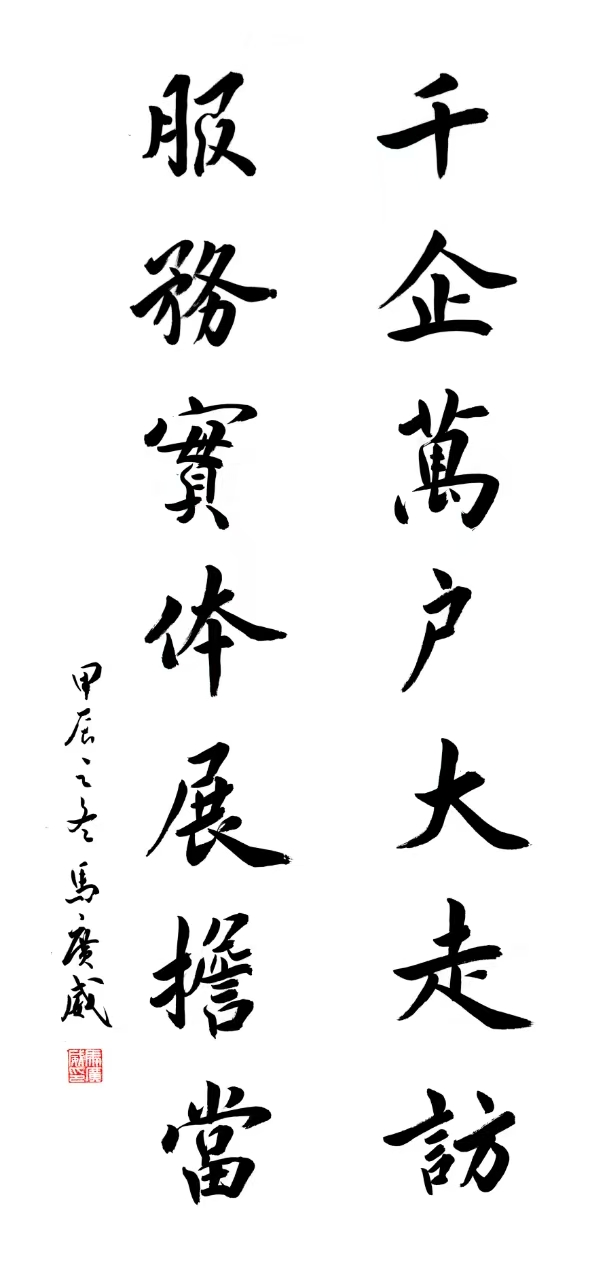 千企萬户大走訪
服務實体展擔當
甲辰之冬馬廣威
馬廣威印